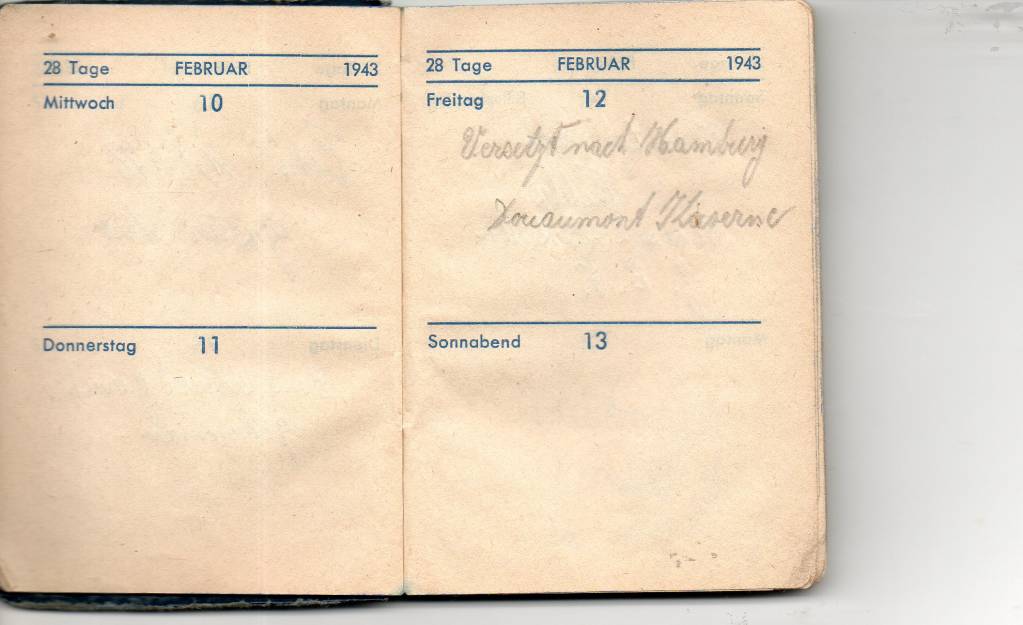 28 Tage FEBRUAR 1943
Mittwoch 10
Donnerstag 11
28 Tage FEBRUAR 1943
Freitag 12
Versetzt nach Hamburg
Douaumont Kaserne
Sonnabend 13